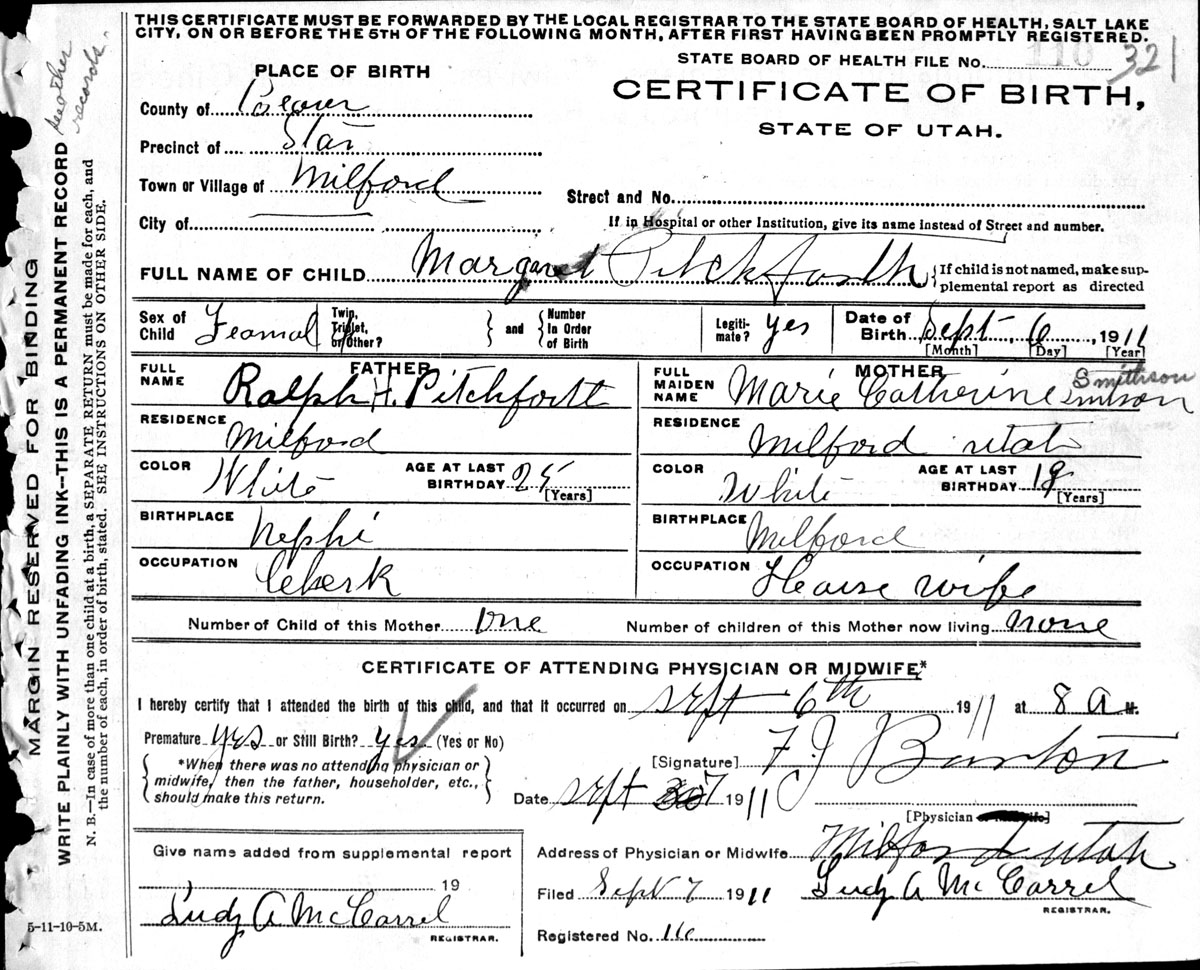 THIS CERTIFICATE MUST BE FORWARDED BY THE LOCAL REGISTRAR TO THE STATE BOARD OF HEALTH, SALT LAKE
CITY, ON OR BEFORE THE 5TH OF THE FOLLOWING MONTH, AFTER FIRST HAVING BEEN PROMPTLY REGISTERED.
MARGIN RESERVED FOR BINDING
WRITE PLAINLY WITH UNFADING INK--THIS IS A PERMANENT RECORD
N. B.—In case of more than one child at a birth, a SEPARATE RETURN must be made for each, and
the number of each, in order of birth, stated. SEE INSTRUCTIONS ON OTHER SIDE.
mother
records.
5-11-10-5M.
STATE BOARD OF HEALTH FILE No. 110 321
PLACE OF BIRTH
CERTIFICATE OF BIRTH,
STATE OF UTAH.
County of Beaver
Precinct of Star
Town or Village of Milford
Street and No.
City of
If in Hospital or other Institution, give its name instead of Street and number.
FULL NAME OF CHILD Margaret Pitchforth { If child is not named, make sup-
plemental report as directed
Sex of Child Feamal Twin, Triplet, or Other? } and { Number In Order of Birth Legiti-mate? yes Date of Birth Sept 6, 1911
[Month] [Day] [Year]
FATHER
FULL NAME Ralph H. Pitchforth
RESIDENCE Milford
COLOR White AGE AT LAST BIRTHDAY 25 [Years]
BIRTHPLACE Nephi
OCCUPATION Clerk
MOTHER
FULL MAIDEN NAME Marie Catherine Smithson
Smitson
RESIDENCE Milford utah
COLOR White AGE AT LAST BIRTHDAY 19 [Years]
BIRTHPLACE Milford
OCCUPATION House wife
Number of Child of this Mother One Number of children of this Mother now living none
CERTIFICATE OF ATTENDING PHYSICIAN OR MIDWIFE*
I hereby certify that I attended the birth of this child, and that it occurred on Sept 6th 1911 at 8 a M.
Premature yes or Still Birth? yes (Yes or No)
{ *When there was no attending physician or
midwife, then the father, householder, etc.,
should make this return. }
[Signature] F J Burton
Date Sept 7 1911
[Physician or Midwife]
Give name added from supplemental report
19
Ludy A McCarrel
REGISTRAR.
Address of Physician or Midwife Milford utah
Filed Sept 7 1911 Ludy A McCarrel
REGISTRAR.
Registered No. 116